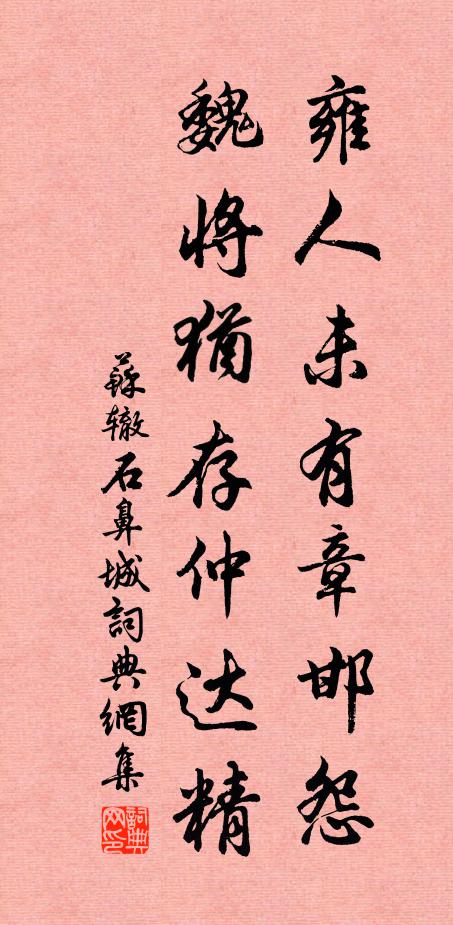 雍人未有章邯怨
魏将犹存仲达精
蘇辙石鼻城詞典網集
詞典网印